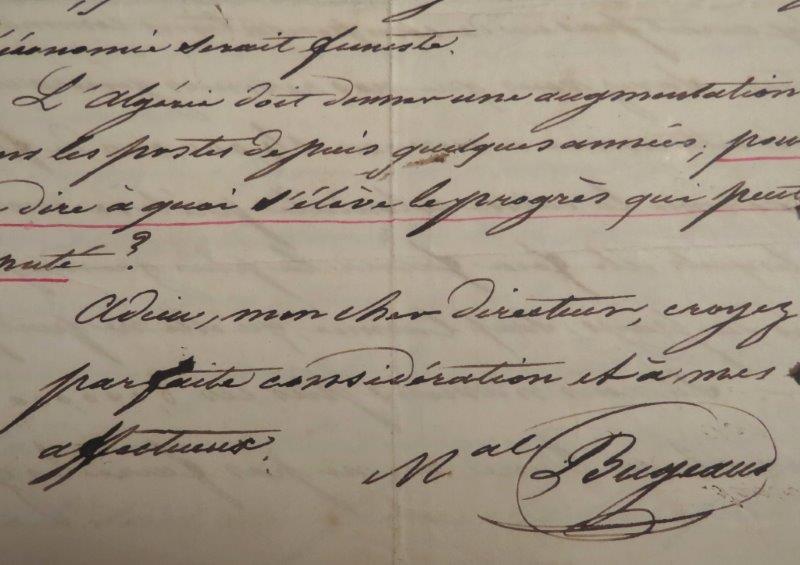 économie serait funeste.
L'Algérie doit donner une augmentation
les postes depuis quelques années; pour
dire à quoi s'élève le progrès qui peut
? 
Adieu, mon cher directeur, croyez
parfaite considération et à mes
affectueux.
Mal Bugeaud